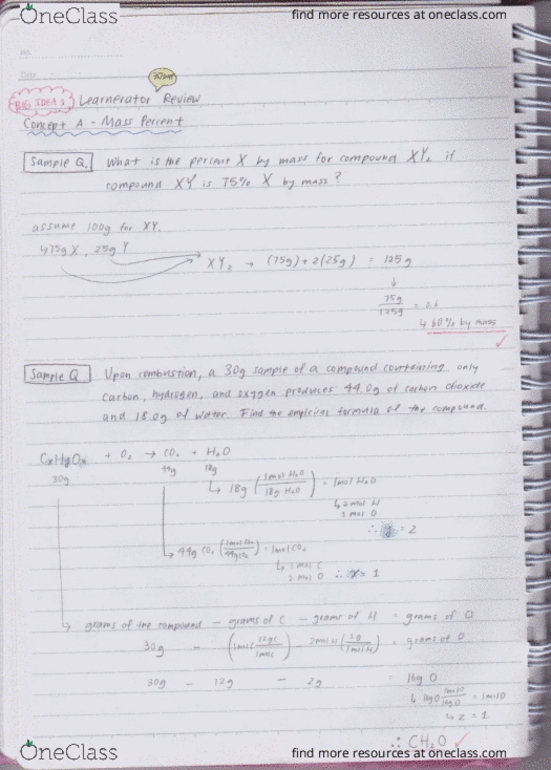 OneClass
find more resources at oneclass.com
No.
Date
BIG IDEA 1 Learnerator Review
Concept A - Mass Percent
Sample Q. What is the percent X by mass for compound XY₂ if
compound XY is 75% X by mass?
assume 100g for XY.
75g X, 25g Y
XY₂ → (75g) + 2(25g) = 125g
↓
75g
125g
↳ 60% by mass
✓
Sample Q Upon combustion, a 30g sample of a compound containing only
carbon, hydrogen, and oxygen produces 44.0g of carbon dioxide
and 18.0g of water. Find the empirical formula of the compound.
+ O₂ → CO₂ + H₂O
30g 44g 18g
↳ 18g (1mol H₂O / 18g H₂O) = 1mol H₂O
↳ 2 mol H
1 mol O
∴ y = 2
44g CO₂ (1mol CO₂ / 44g CO₂) = 1mol CO₂
↳ 1 mol C
2 mol O ∴ x = 1
grams of the compound - grams of C - grams of H = grams of O
30g - (1mol C 12gC / 1molC) - 2mol H (1g / 1mol H) = grams of O
30g - 12g - 2g = 16g O
↳ 16gO 1molO / 16gO = 1molO
↳ z = 1
∴ CH₂O ✓
OneClass
find more resources at oneclass.com